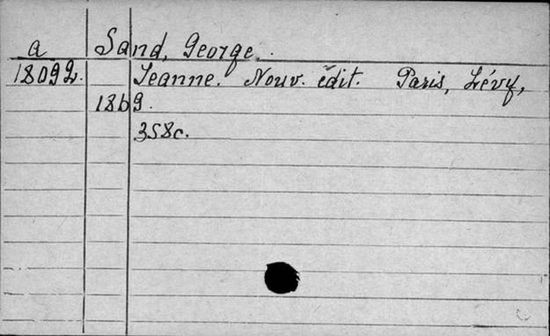 a Sand, George.
18092. Jeanne. Nouv. édit. Paris, Lévy,
1869.
358c.